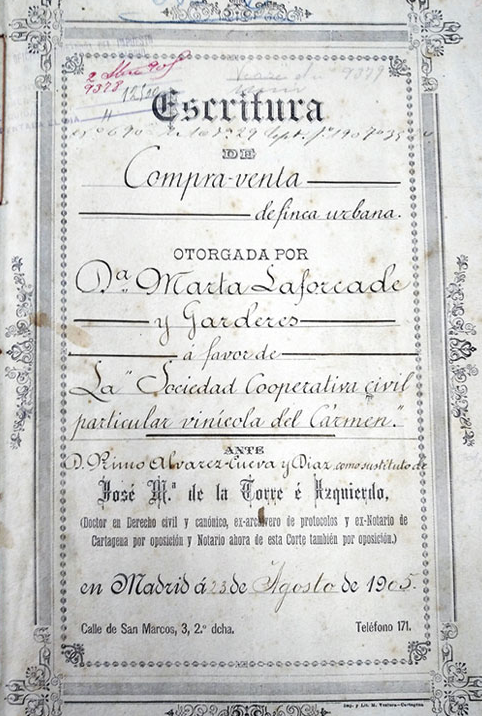 9378
9379
Escritura
DE
Compra-venta
de finca urbana.
OTORGADA POR
Dª. Marta Laforcade
y Garderes
á favor de
La "Sociedad Cooperativa civil
particular vinícola del Cármen."
ANTE
D. Primo Alvarez-Cueva y Diaz, como sustituto de
José M.ª de la Torre é Izquierdo,
(Doctor en Derecho civil y canónico, ex-archivero de protocolos y ex-Notario de
Cartagena por oposición y Notario ahora de esta Corte también por oposición.)
en Madrid á 23 de Agosto de 1905.
Calle de San Marcos, 3, 2.º dcha. Teléfono 171.
Imp. y Lit. M. Ventura-Cartagena